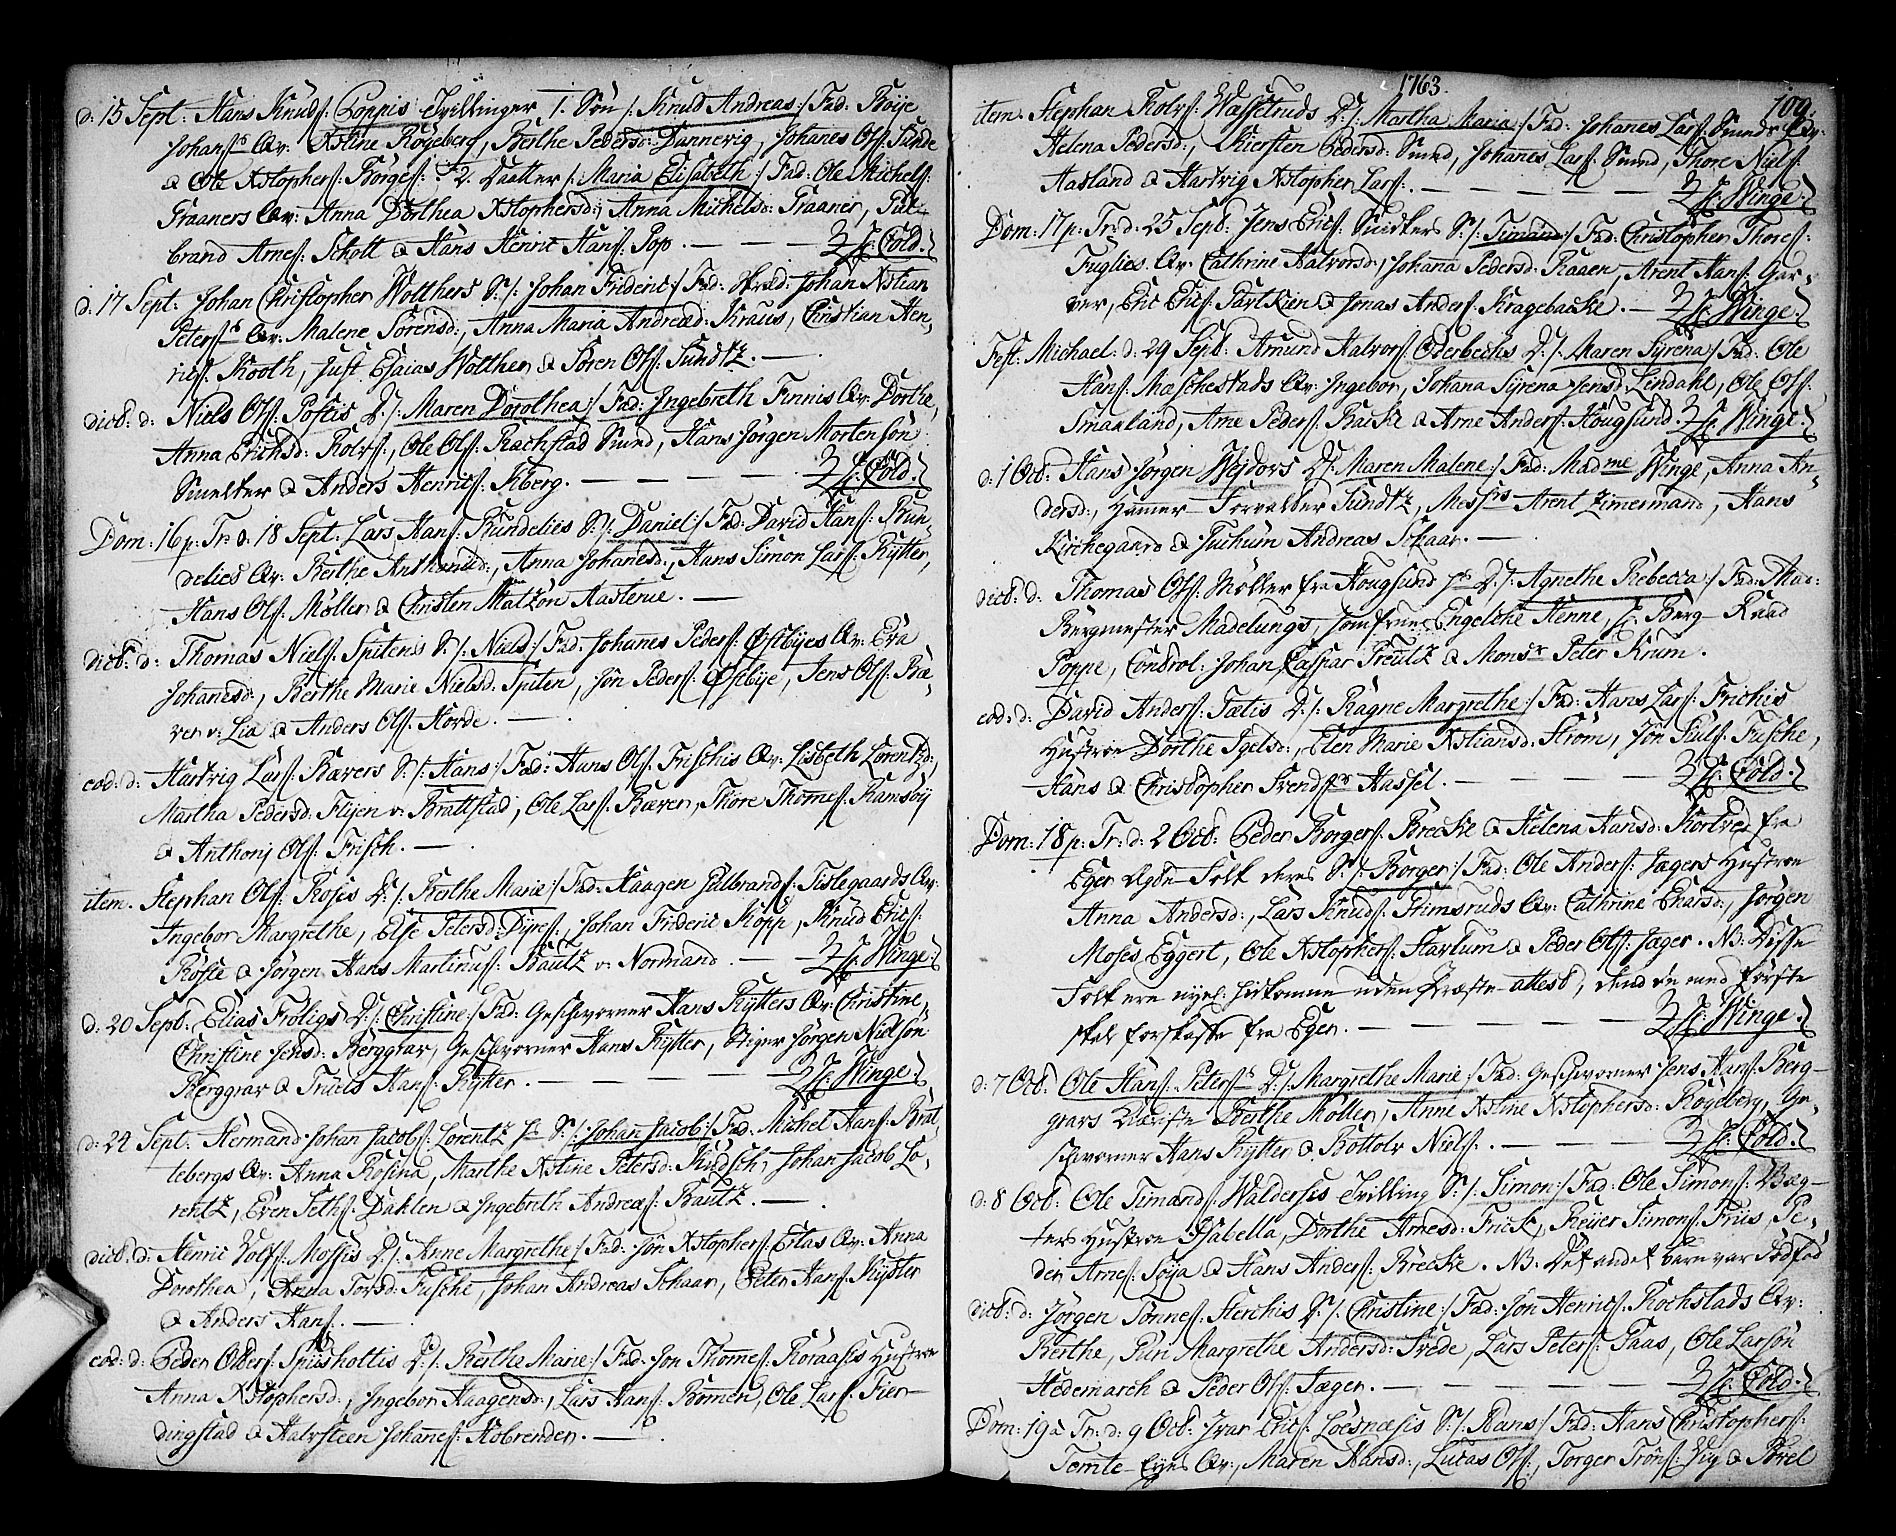 d: 15 Sept: Hans Knuds: Poppis Tvillinger 1. Søn /: Knud Andreas :/ Fad: Boÿe
Johans: Qv: Xstine Røgeberg, Berthe Pedersd: Dannevig, Johanes Ols: Sunde
& Ole Xstophers: Børges: 2. Daatter /: Maria Elisabeth :/ Fad: Ole Michels:
Fraaners Qv: Anna Dorthea Xstophersd:, Anna Michelsd: Fraaner, Gul-
brand Arnes: Schott & Hans Henric Hans: Pop. — Hr: Cold.
d: 17 Sept: Johan Christopher Wolthers S: /: Johan Frideric :/ Fad: Johan Xstian
Peters: Qv: Malene Sørensd:, Anna Maria Andreæd: Kraus, Christian Hen-
rics: Kooth, Just Esaias Wolther & Søren Ols: Sundtz. —
dict: d: Niels Ols: Postis D: /: Maren Dorothea :/ Fad: Ingebreth Finnis Qv: Dorthe,
Anna Erichsd: Rolvs:, Ole Ols: Rachstad Smed, Hans Jørgen Mortensøn
Smelter & Anders Henrics: Fiberg. — Hr: Cold.
Dom: 16 p: Tr: d: 18 Sept: Lars Hans: Rundelies S: /: Daniel :/ Fad: David Hans: Run-
delies Qv: Berthe Anthonid:, Anna Johanesd:, Hans Simon Lars: Rytter,
Hans Ols: Møller & Christen Matzøn Aasterue. —
dict: d: Thomas Niels: Spitens S: /: Niels :/ Fad: Johannes Peders: Østbÿes Qv: Eva
Johanesd:, Berthe Marie Nielsd: Spiten, Jon Peders: Østbÿe, Jens Ols: Bæ-
ver v: Lia & Anders Ols: Horde. —
eod: d: Hartvig Lars: Bævers S: /: Hans :/ Fad: Hans Ols: Frischis Qv: Lisbeth Lorentzd:,
Martha Pedersd: Flijen v: Brattstad, Ole Lars: Bæver, Thore Thomes: Ramsøÿ
& Anthonj Ols: Frisch. —
item. Stephan Ols: Roses D: /: Berthe Marie :/ Fad: Haagen Gulbrands: Tislegaards Qv:
Ingebor Margrethe, Else Petersd: Dÿres:, Johan Frideric Kopp, Knud Erics:
Rosee & Jørgen Hans Martinus: Bautz v: Normand. — Hr: Winge.
d: 20 Sept: Elias Froligs D: /: Christine :/ Fad: Geschworner Hans Rÿtters Qv: Christine,
Christine Jensd: Berggrav, Geschworner Hans Rÿtter, Stiger Jørgen Nielsøn
Berggrav & Truels Hans: Rÿtter. — Hr: Winge.
d: 24 Sept: Herman Johan Jacobs: Lorentz S: /: Johan Jacob :/ Fad: Michel Hans: Brat-
tebergs Qv: Anna Rosina, Marthe Xstine Petersd: Kudsch, Johan Jacob Lo-
rentz, Even Seths: Dahlen & Ingebrith Andreæs: Bautz. —
dict: d: Henric Volfs: Mossis D: /: Anne Margrethe :/ Fad: Jon Xstophers: Eitas Qv: Anna
Dorothea, Anna Torsd: Fusche, Johan Andreas Schaar, Peter Hans: Kÿster
& Anders Hans: —
eod: d: Peder Olders: Spusholttis D: /: Berthe Marie :/ Fad: Jon Thomes: Roraasis Hustroe
Anna Xstophersd:, Ingebor Haagensd:, Lars Hans: Bomen, Ole Lars: Fier-
dingstad & Halvsteen Johanes: Kobrenden. —
1763.
109.
item. Stephan Rolvs: Wasetruds D: /: Martha Maria :/ Fad: Johanes Lars: Smeds Qv:
Helena Pedersd:, Kiersten Pedersd: Smed, Johanes Lars: Smed, Thore Niels:
Aasland & Hartvig Xstopher Lars: — Hr: Winge.
Dom: 17 p: Tr: d: 25 Sept: Jens Erics: Smelters S: /: Simen :/ Fad: Christopher Thores:
Fuglies Qv: Cathrine Halvorsd:, Johana Pedersd: Raaen, Arent Hans: Gar-
ver, Eric Erics: Partkien & Jonas Anders: Kragebacke. — Hr: Winge.
Fest: Michael: d: 29 Sept: Amund Halvors: Oderbechs D: /: Maren Sÿrena :/ Fad: Ole
Hans: Maschestads Qv: Ingebor, Johana Sÿrena Jensd: Lendahl, Ole Ols:
Smaaland, Arne Peders: Backe & Arne Anders: Hougsund. Hr: Winge.
d: 1 Oct: Hans Jørgen Wejdors D: /: Maren Malene :/ Fad: Madme Winge, Anna An-
dersd:, Hammer-Forvalter Sundtz, Messrs Arent Zimermand, Hans
Kirchegaard & Juchum Andreas Schaar. —
dict: d: Thomas Ols: Møller fra Hougsund D: /: Agnethe Rebecca :/ Fad: Mad:
Bergmester Madelungs, Jomfrue Engelche Henne, Hr: Berg-Raad
Poppe, Control: Johan Caspar Preutz & Monsr Peter Krum.
eod: d: David Anders: Tætis D: /: Ragne Margrethe :/ Fad: Hans Lars: Frichis
Hustroe Dorthe Igelsd:, Elen Marie Xstiansd: Strøm, Jon Juuls: Fusche,
Hans & Christopher Svendser Hassel. — Hr: Cold.
Dom: 18 p: Tr: d: 2 Oct: Peder Borgers: Brecke & Helena Hansd: Kortved fra
Eger Ægte-Folk deres S: /: Borger :/ Fad: Ole Anders: Jagers Hustroe
Anna Andersd:, Lars Knuds: Himsruds Qv: Cathrine Enarsd:, Jørgen
Moses Eggert, Ole Xstophers: Stavlum & Peder Ols: Jæger. NB: Disse
Folk ere nÿel: hidkomne uden Præste-attest, hvilcken de med første
skal forskaffe fra Eger. — Hr: Winge.
d: 7 Oct: Ole Hans: Peters: D: /: Margrethe Marie :/ Fad: Geschworner Jens Hans: Berg-
gravs Kiæriste Berthe Møller, Anne Xstine Xstophersd: Røgeberg, Ge-
schworner Hans Rÿtter & Bottolv Niels: — Hr: Cold.
d: 8 Oct: Ole Timands: Waldershis Tvilling S: /: Simon :/ Fad: Ole Simons: Vægt-
ters Hustroe Isabella, Dorthe Arnesd: Frisk, Reijer Simons: Friis, Pe-
der Arnes: Søÿa & Hans Anders: Brecke. NB: Det andet barn var dødfød
dict: d: Jørgen Tønnes: Sterchis D: /: Christine :/ Fad: Jon Henrics: Rochstads Qv:
Berthe, Pari Margrethe Andersd: Svede, Lars Peters: Faas, Ole Larsøn
Hedemarch & Peder Ols: Jæger. — Hr: Cold.
Dom: 19 a Tr: d: 9 Oct: Ivar Erics: Loesnæsis S: /: Hans :/ Fad: Hans Christophers:
Temte-Eÿes Qv:, Maren Hansd:, Lucas Ols:, Torger Trons: Juÿ & Povel